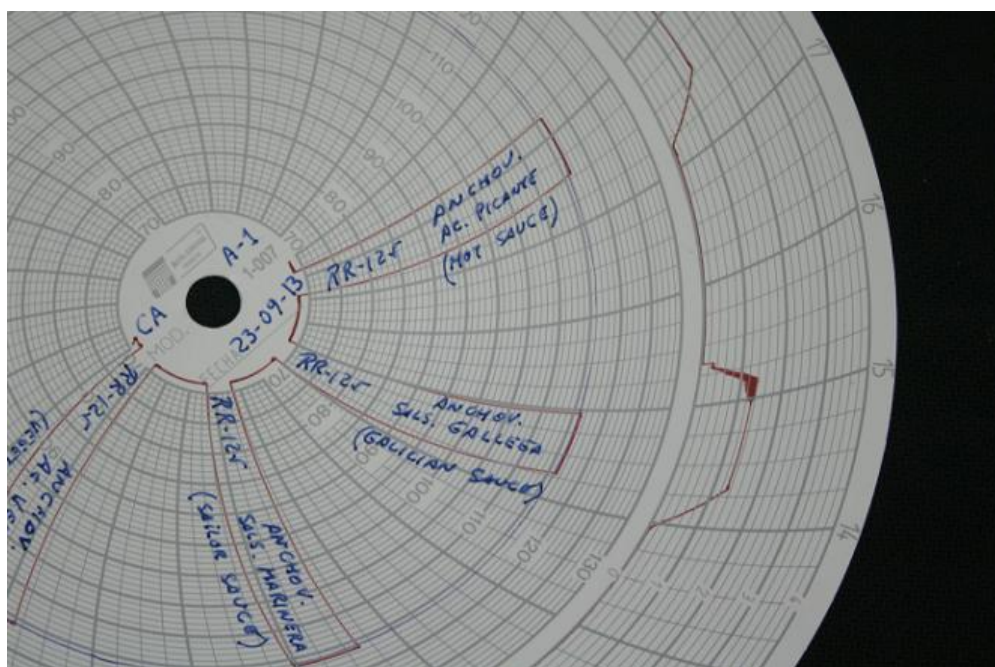 A-1
1-007
23-09-13
CA
MOD.
ANCHOV.
AC. PICANTE
RR-125
(HOT SAUCE)
RR-125
ANCHOV.
SALS. GALLEGA
(GALILIAN SAUCE)
RR-125
ANCHOV.
SALS. MARINERA
(SAILOR SAUCE)
RR-125
ANCHOV.
70
80
90
100
70
80
90
100
110
120
70
80
90
100
110
120
130
17
16
15
14
0
1
2
3
4